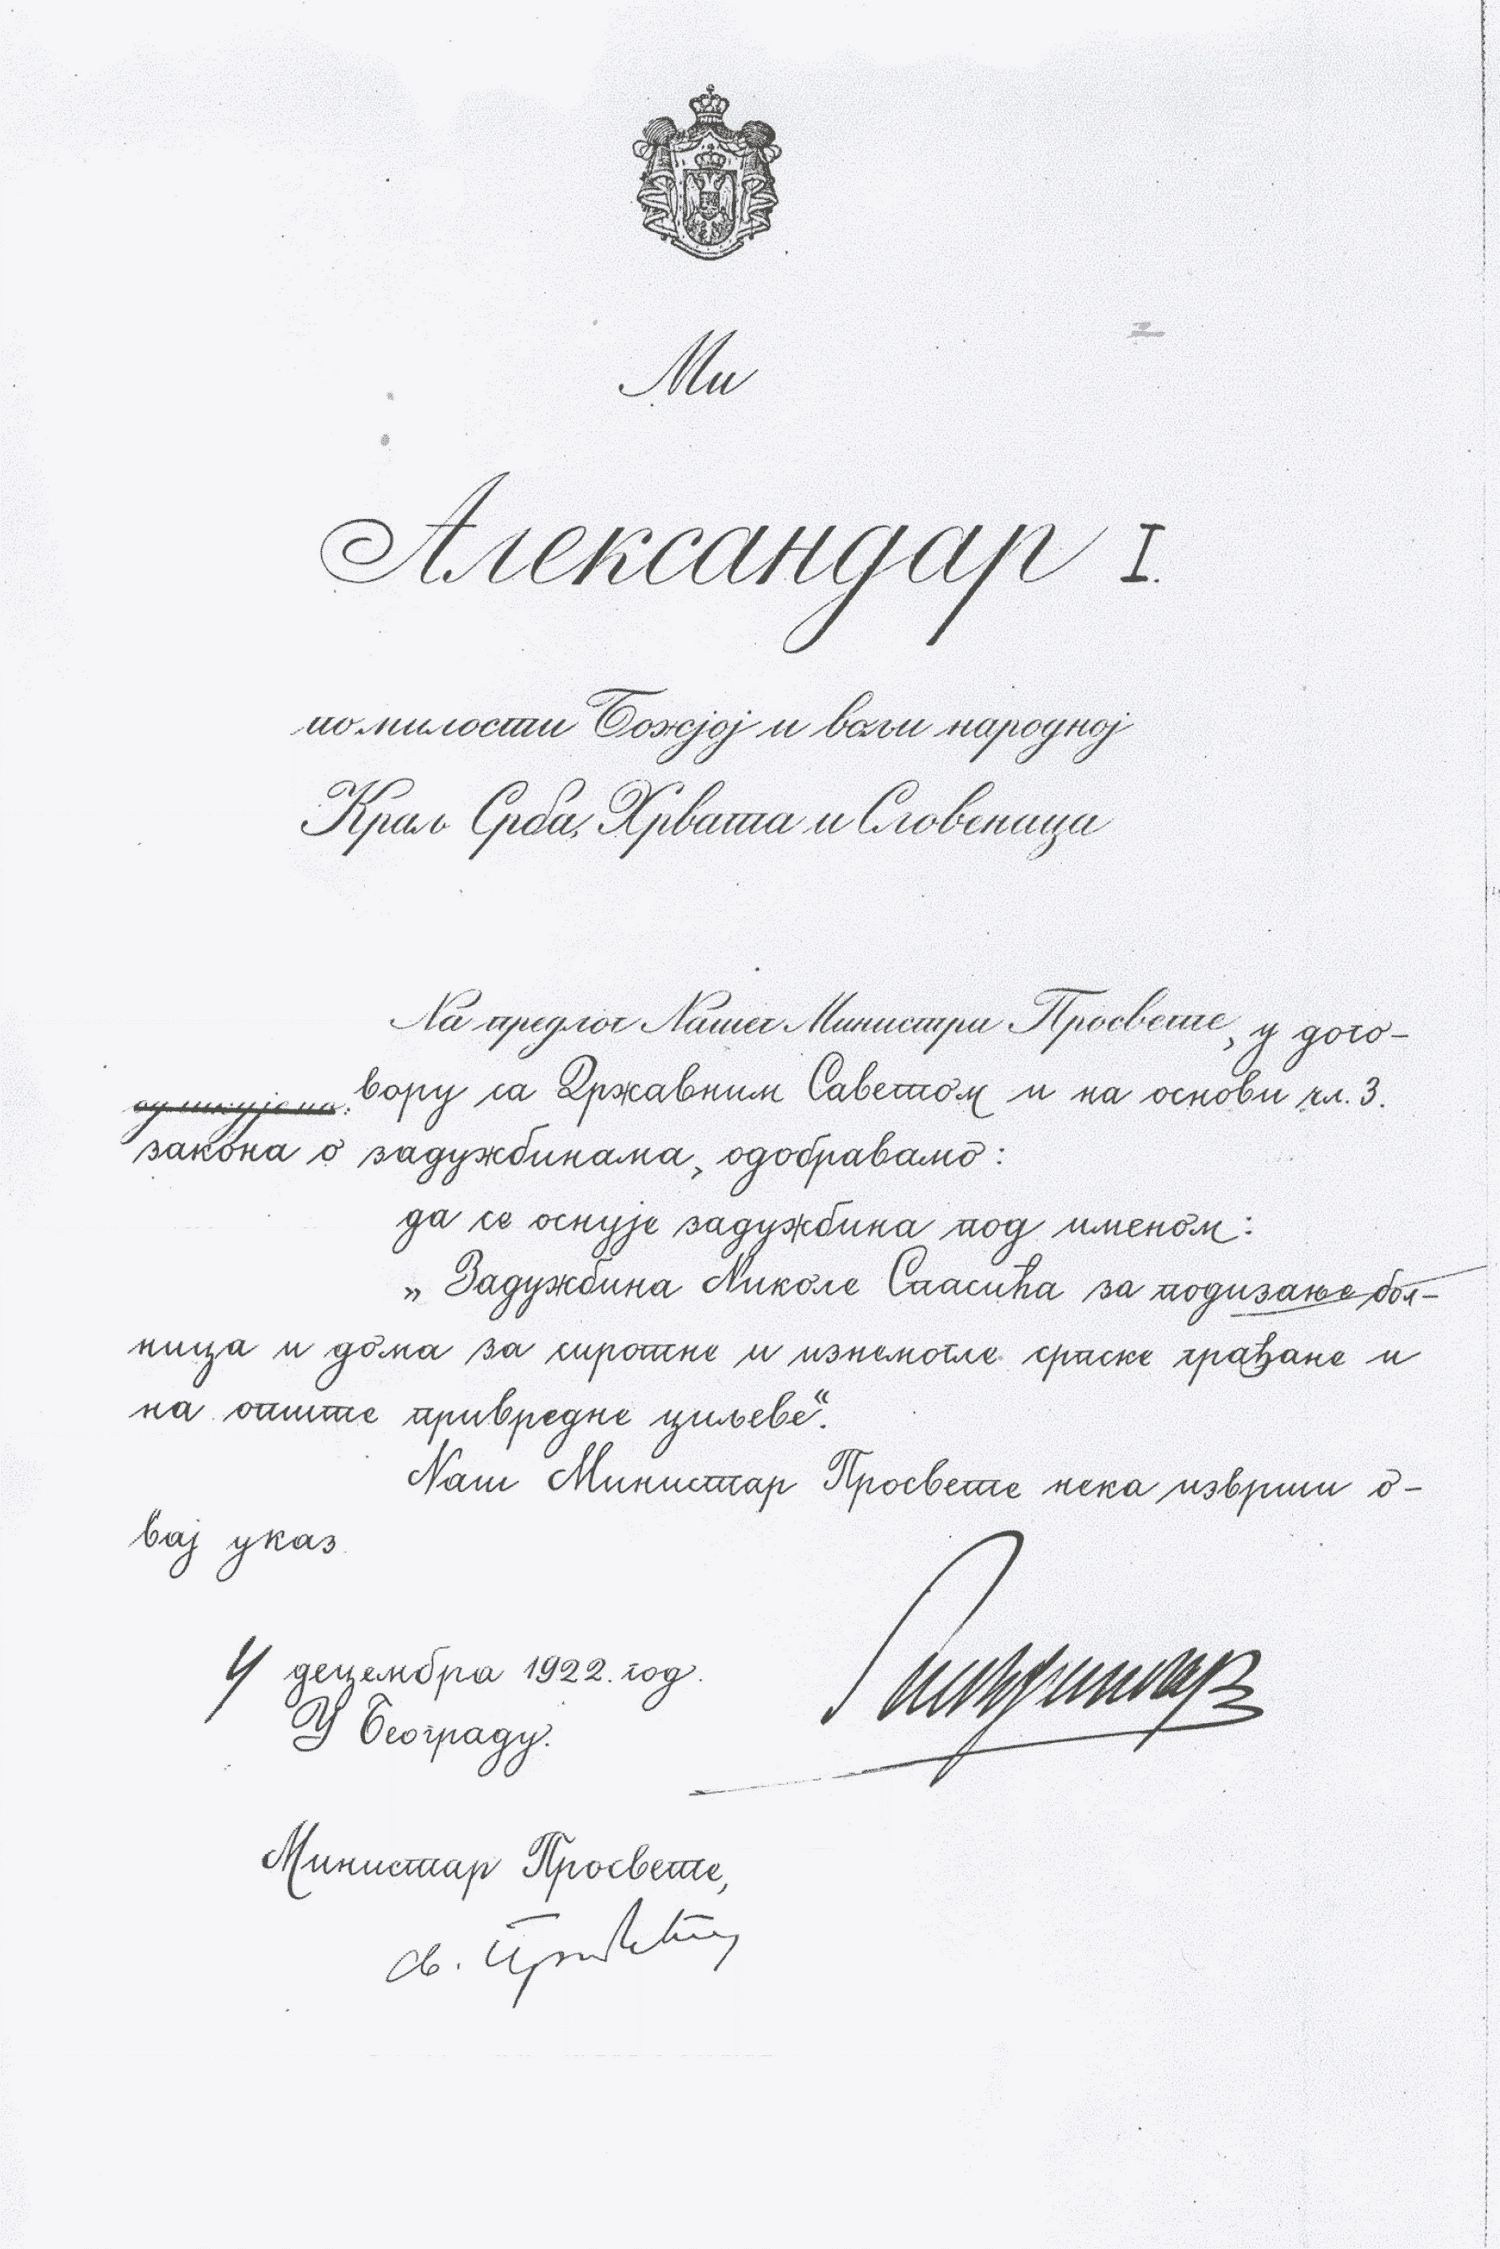 Ми
Александар I.
по милости Божјој и вољи народној
Краљ Срба, Хрвата и Словенаца
На предлог Нашег Министра Просвете, у дого-
вору са Државним Саветом и на основи чл. 3.
закона о задужбинама, одобравамо:
да се оснује задужбина под именом:
„Задужбина Николе Спасића за подизање бол-
ница и дома за сиротне и изнемогле српске грађане и
на опште привредне циљеве“.
Наш Министар Просвете нека изврши о-
вај указ
4 децембра 1922. год.
У Београду.
Министар Просвете,